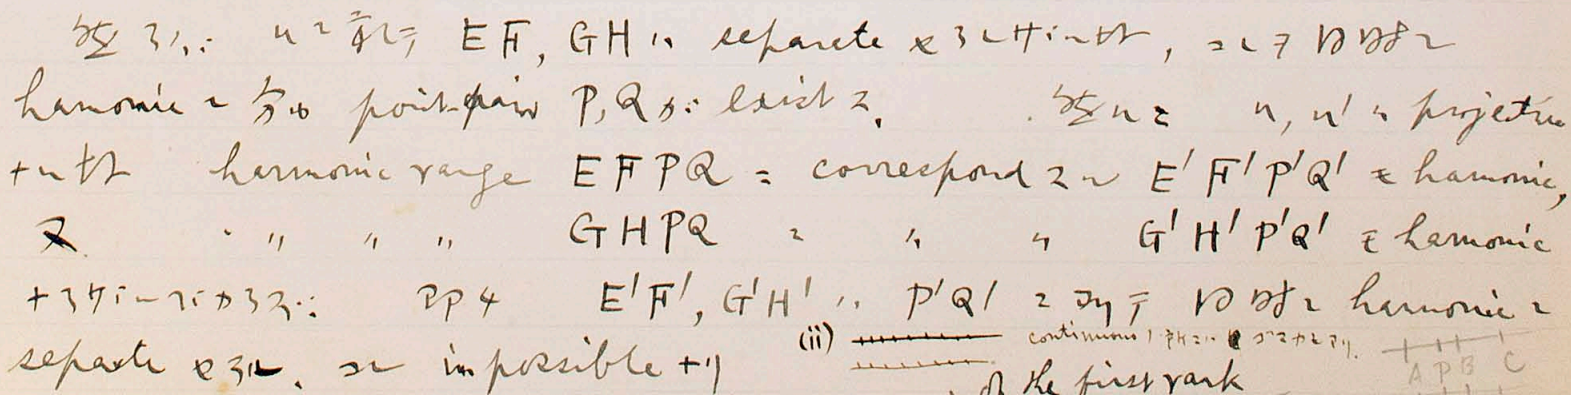 然ラバ u ニ於テ EF, GH ハ separate セラレザル故, 之ヲ同時ニ
harmonic ニ分ツ point-pair P, Q ガ exist ス. 然ルニ u, u' ハ projective
ナル故 harmonic range EFPQ ニ correspond スル E'F'P'Q' モ harmonic,
又 〃 〃 〃 GHPQ ニ 〃 〃 G'H'P'Q' モ harmonic
ナラザルベカラズ. 即チ E'F', G'H' ハ P'Q' ニヨリテ同時ニ harmonic ニ
separate セラル. 之 impossible ナリ
(ii) continuous
A P B C
of the first rank